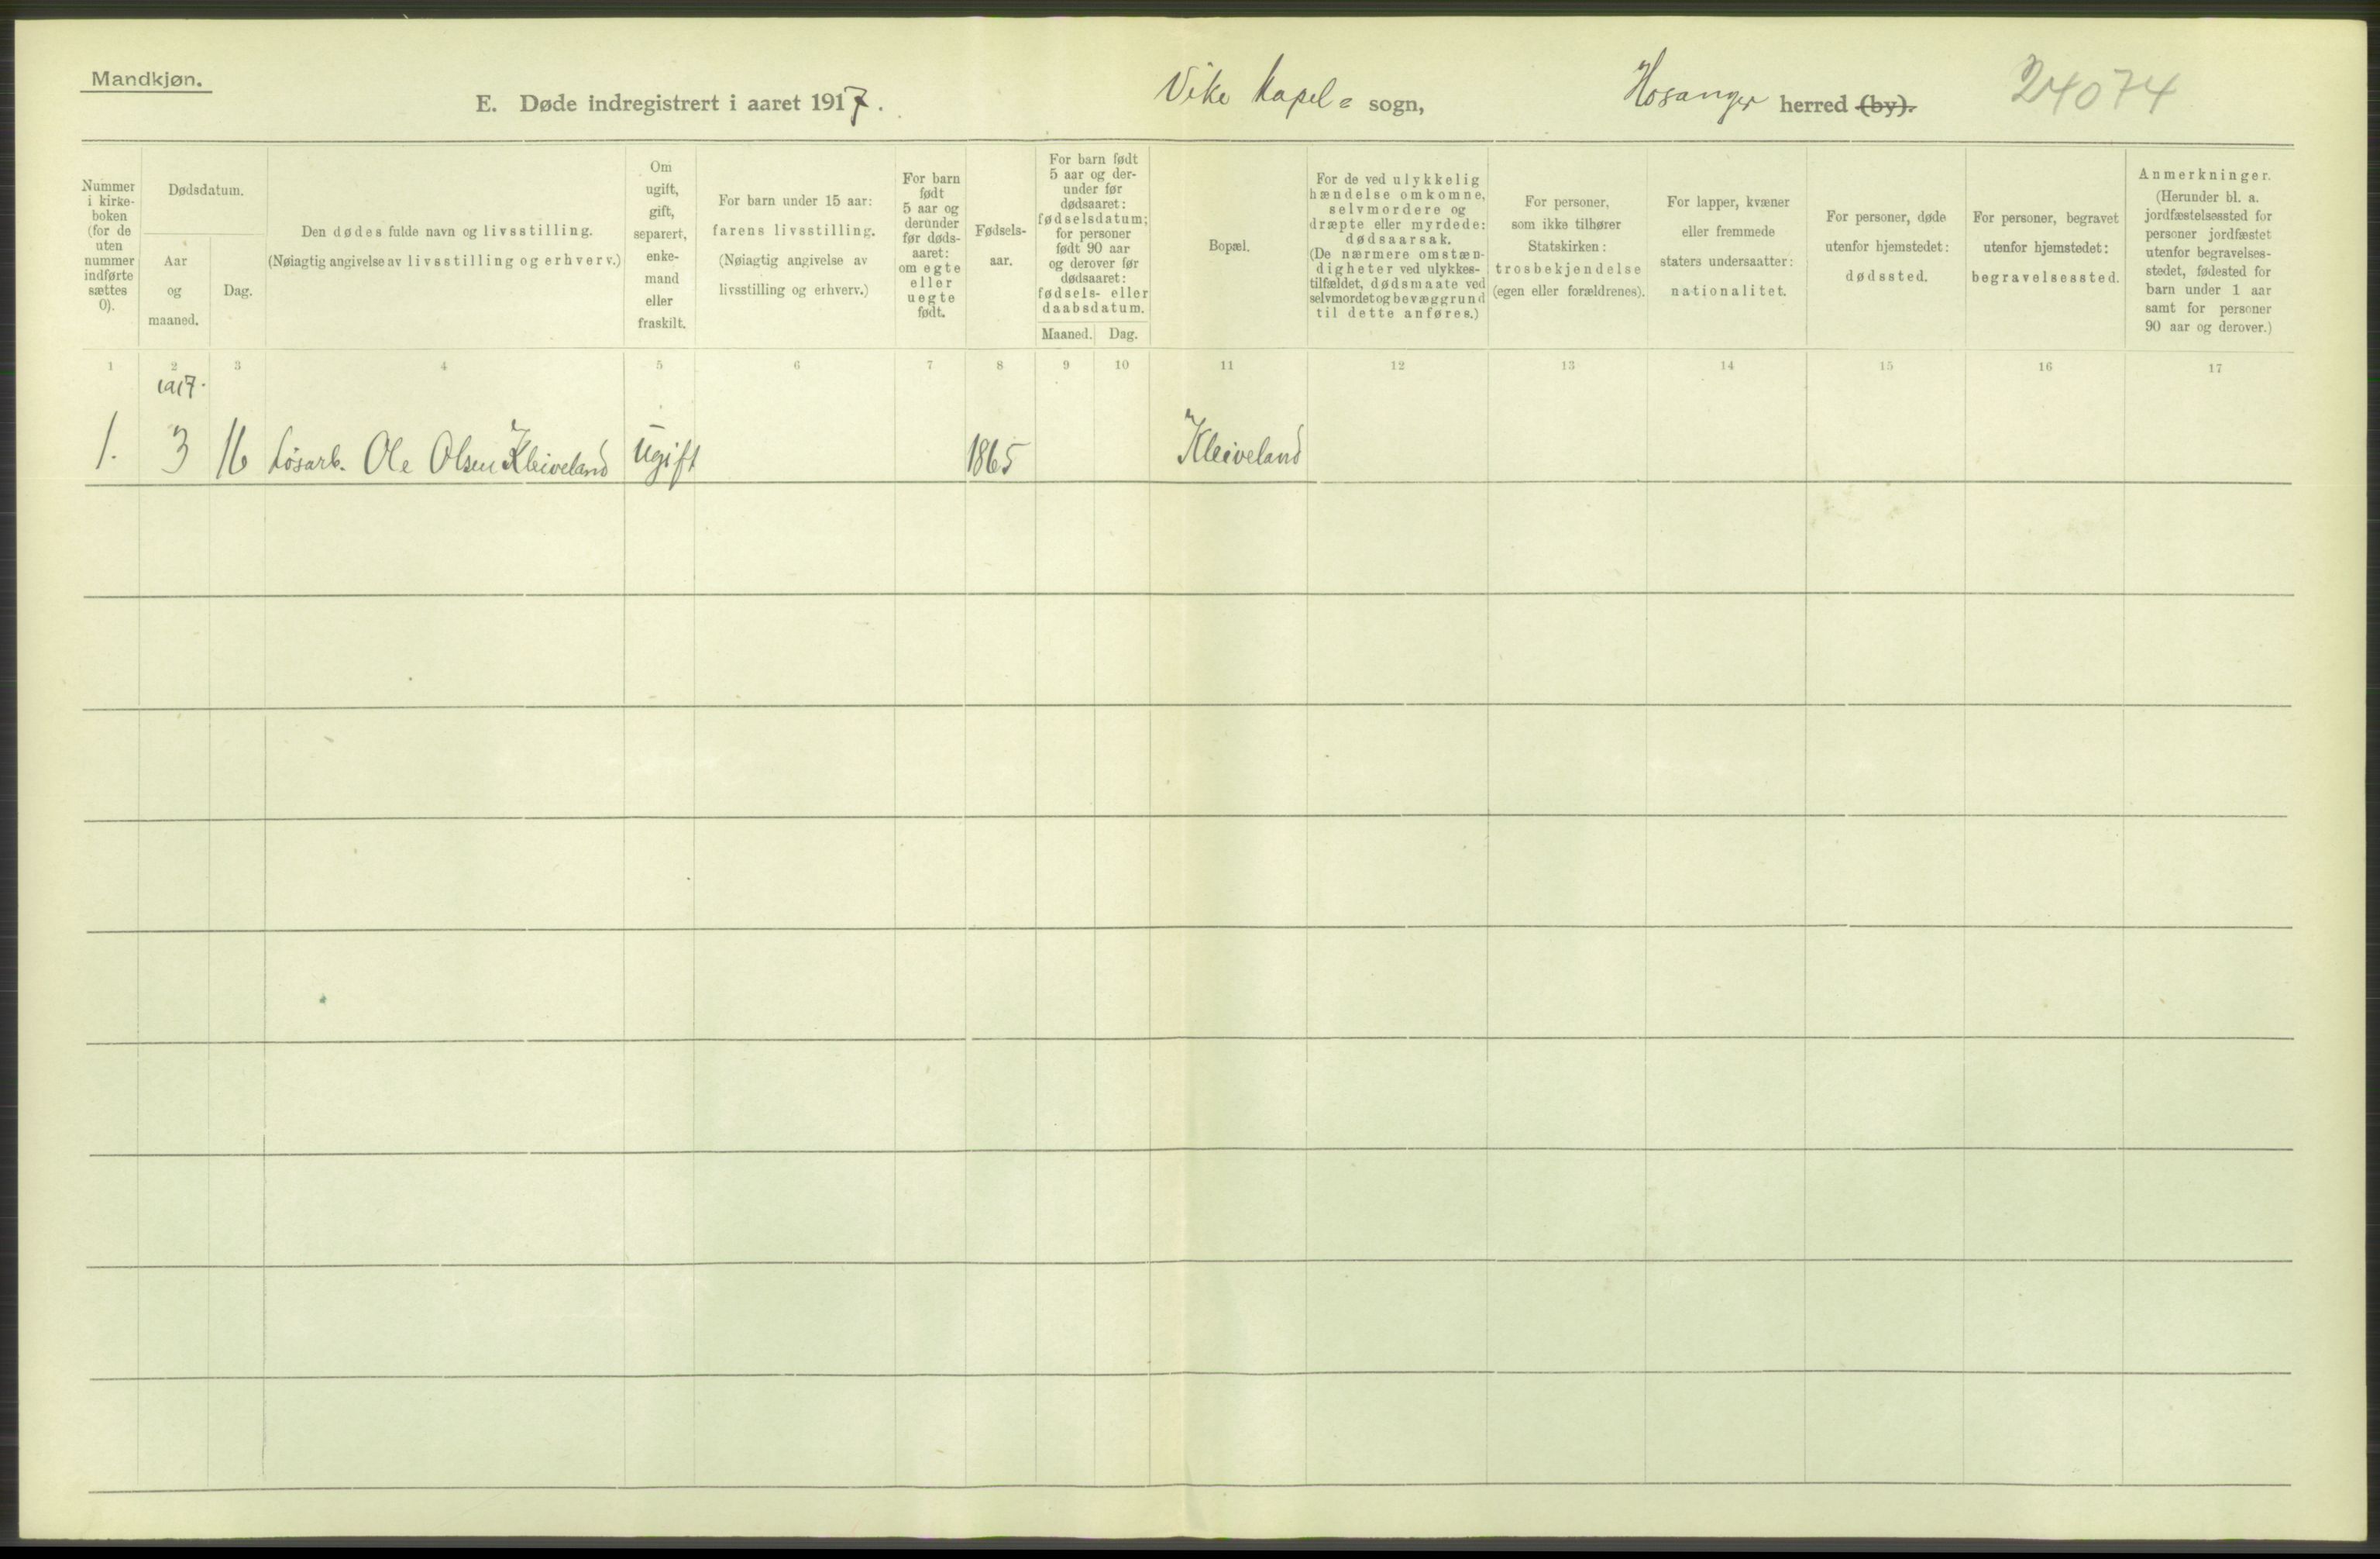 Mandkjøn.
E. Døde indregistrert i aaret 1917. Vike Kapel= sogn, Hosanger herred (by). 24074
Nummer i kirke- boken (for de uten nummer indførte sættes 0).
Dødsdatum.
Aar og maaned.
Dag.
Den dødes fulde navn og livsstilling.
(Nøiagtig angivelse av livsstilling og erhverv.)
Om ugift, gift, separert, enke- mand eller fraskilt.
For barn under 15 aar:
farens livsstilling.
(Nøiagtig angivelse av
livsstilling og erhverv.)
For barn født 5 aar og derunder før døds- aaret: om egte eller uegte født.
Fødsels- aar.
For barn født 5 aar og der- under før dødsaaret: fødselsdatum; for personer født 90 aar og derover før dødsaaret: fødsels- eller daabsdatum.
Maaned. Dag.
Bopæl.
For de ved ulykkelig hændelse omkomne, selvmordere og dræpte eller myrdede: dødsaarsak. (De nærmere omstæn- digheter ved ulykkes- tilfældet, dødsmaate ved selvmordet og bevæggrund til dette anføres.)
For personer, som ikke tilhører Statskirken: trosbekjendelse (egen eller forældrenes).
For lapper, kvæner eller fremmede staters undersaatter: nationalitet.
For personer, døde utenfor hjemstedet: dødssted.
For personer, begravet utenfor hjemstedet: begravelsessted.
Anmerkninger.
(Herunder bl. a. jordfæstelsessted for personer jordfæstet utenfor begravelses- stedet, fødested for barn under 1 aar samt for personer 90 aar og derover.)
1 2 3 4 5 6 7 8 9 10 11 12 13 14 15 16 17
1917.
1. 3 16 Løsarb. Ole Olsen Kleiveland Ugift 1865 Kleiveland